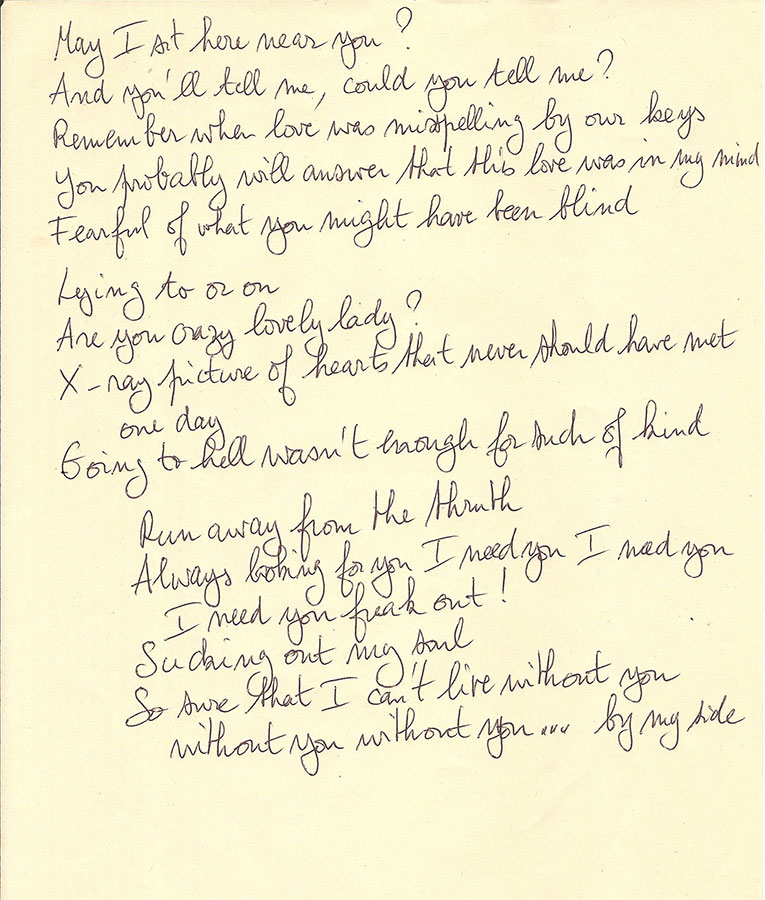 May I sit here near you?
And you'll tell me, could you tell me?
Remember when love was misspelling by our keys
You probably will answer that this love was in my mind
Fearful of what you might have been blind
Lying to or on
Are you crazy lovely lady?
X-ray picture of hearts that never should have met
one day
Going to hell wasn't enough for such of kind
Run away from the thruth
Always looking for you I need you I need you
I need you freak out!
Sucking out my soul
So sure that I can't live without you
without you without you... by my side